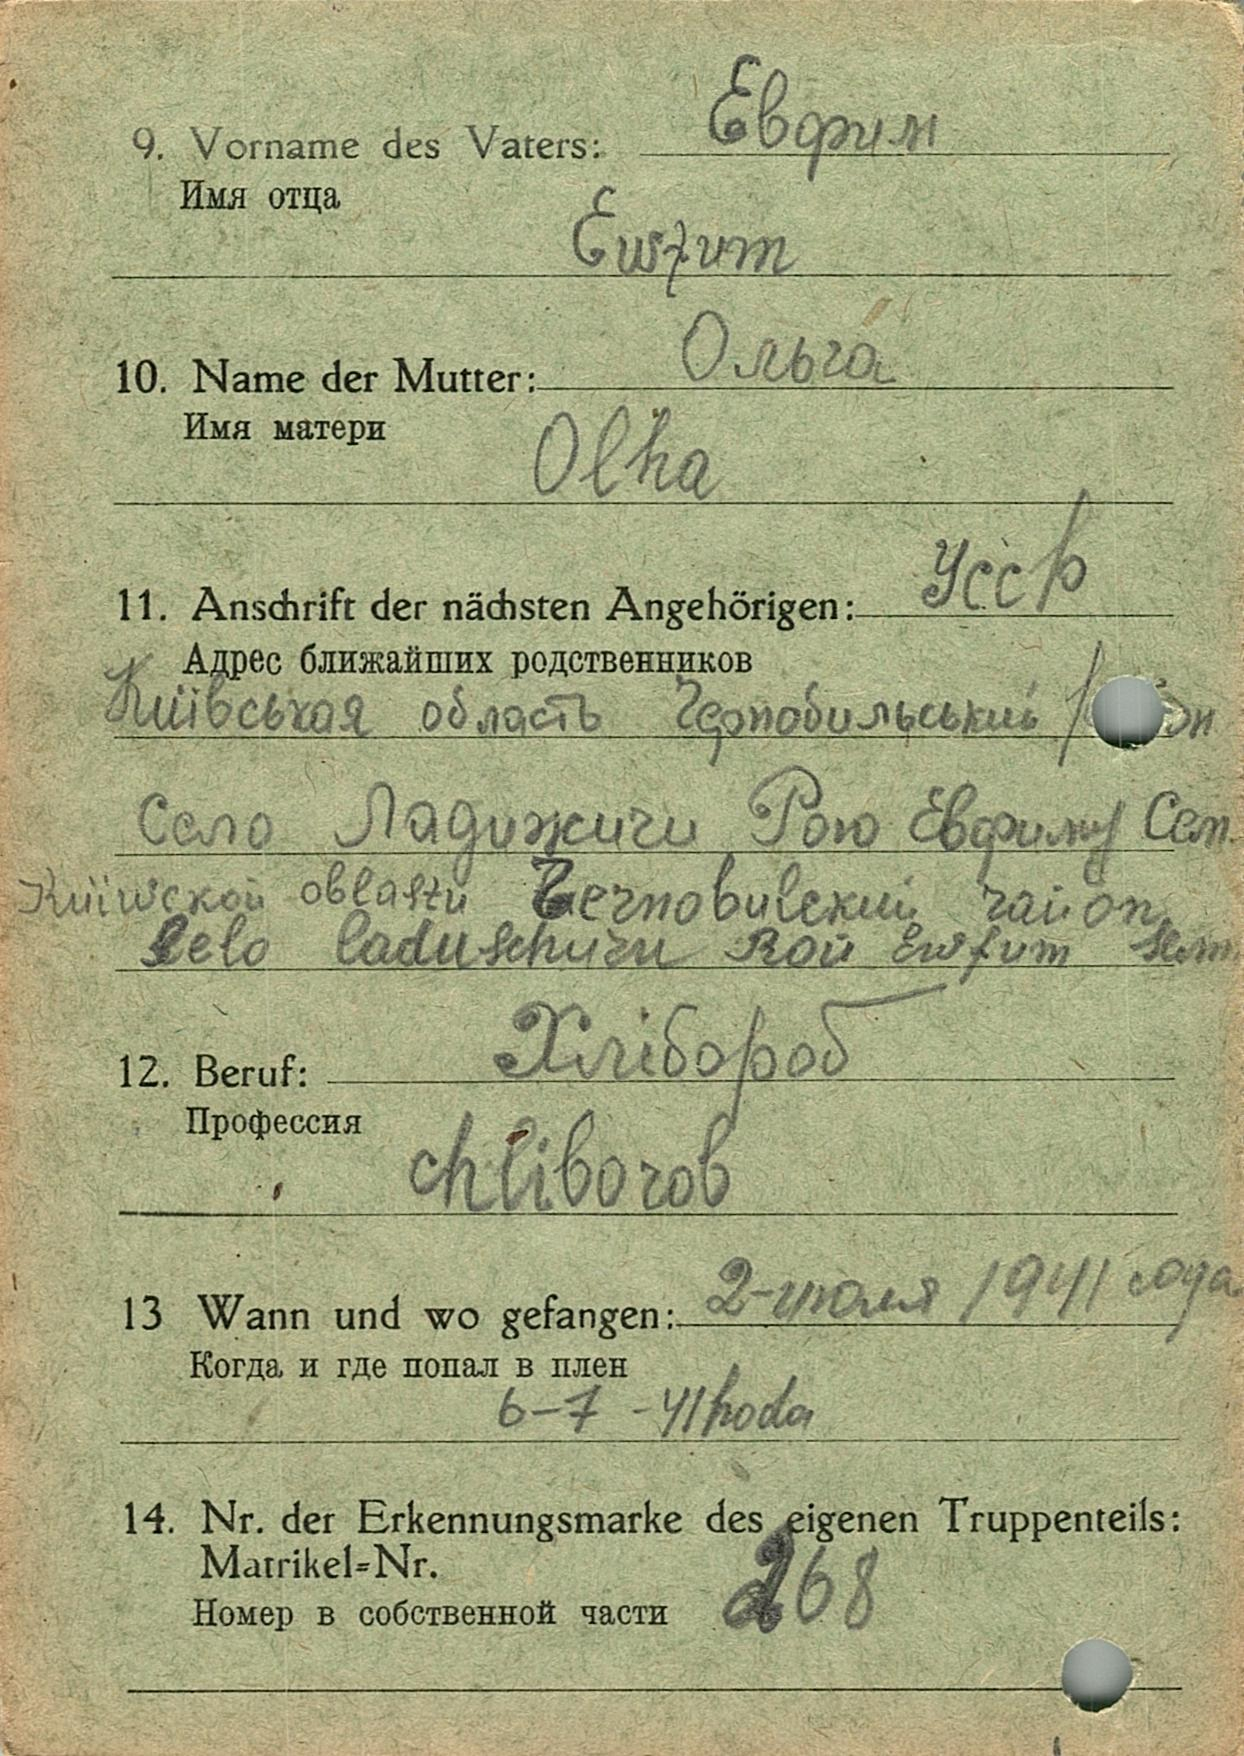 9. Vorname des Vaters: Евфим
Имя отца
Ewfum
10. Name der Mutter: Ольга
Имя матери
Olha
11. Anschrift der nächsten Angehörigen: УССР
Адрес ближайших родственников
Київськая область Чернобильський
Село Ладижичи Рою Евфиму Сем.
Київской oblasti Черnobulский район
Selo laduschичи Roй Ewfum Sem
12. Beruf: Хлібороб
Профессия
chliborob
13 Wann und wo gefangen: 2-июля 1941 года
Когда и где попал в плен
6-7-41 hoda
14. Nr. der Erkennungsmarke des eigenen Truppenteils:
Matrikel=Nr.
Номер в собственной части 268